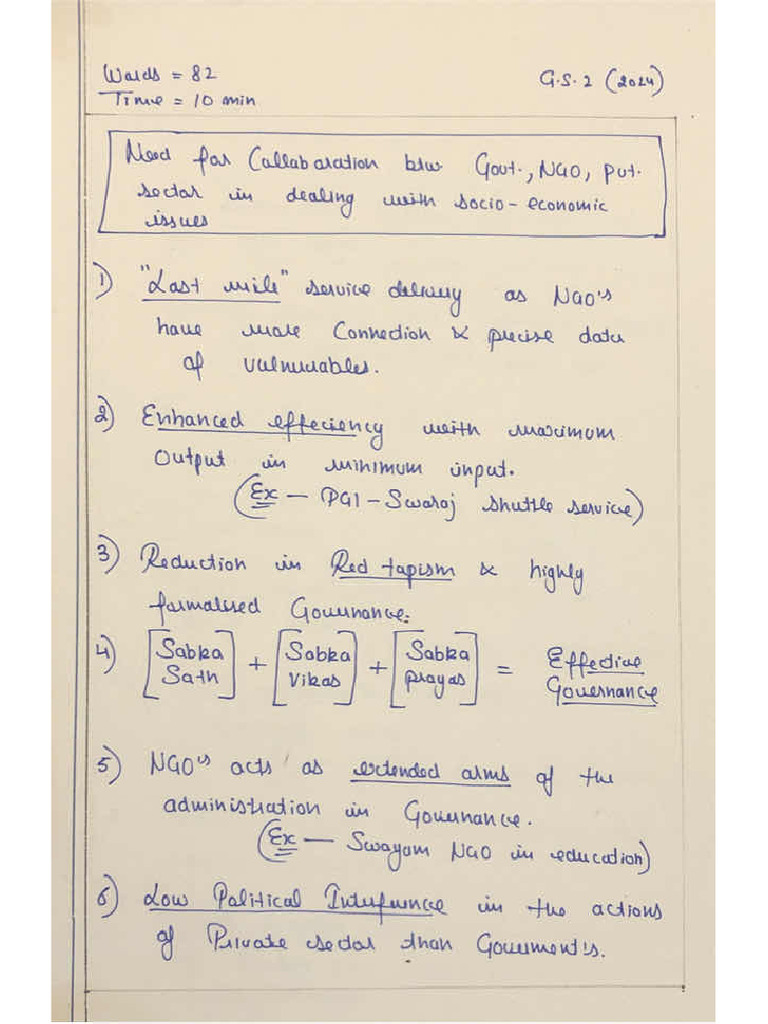 Words = 82
Time = 10 min
G.S. 2 (2024)
Need for Collaboration btw Govt., NGO, pvt.
sector in dealing with socio-economic
issues
1) "Last mile" service delivery as NGO's
have more Connection & precise data
of vulnurables.
2) Enhanced effeciency with maximum
output in minimum input.
(Ex – PGI – Swaraj shuttle service)
3) Reduction in Red tapism & highly
formalised Governance.
4) [Sabka Sath] + [Sabka Vikas] + [Sabka prayas] = Effective
Governance
5) NGO's acts as extended arms of the
administration in Governance.
(Ex – Swayam NGO in education)
6) Low Political Interference in the actions
of Private sector than Government's.